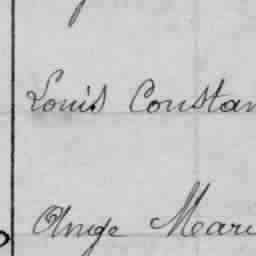 Louis Constan
Ange Mari